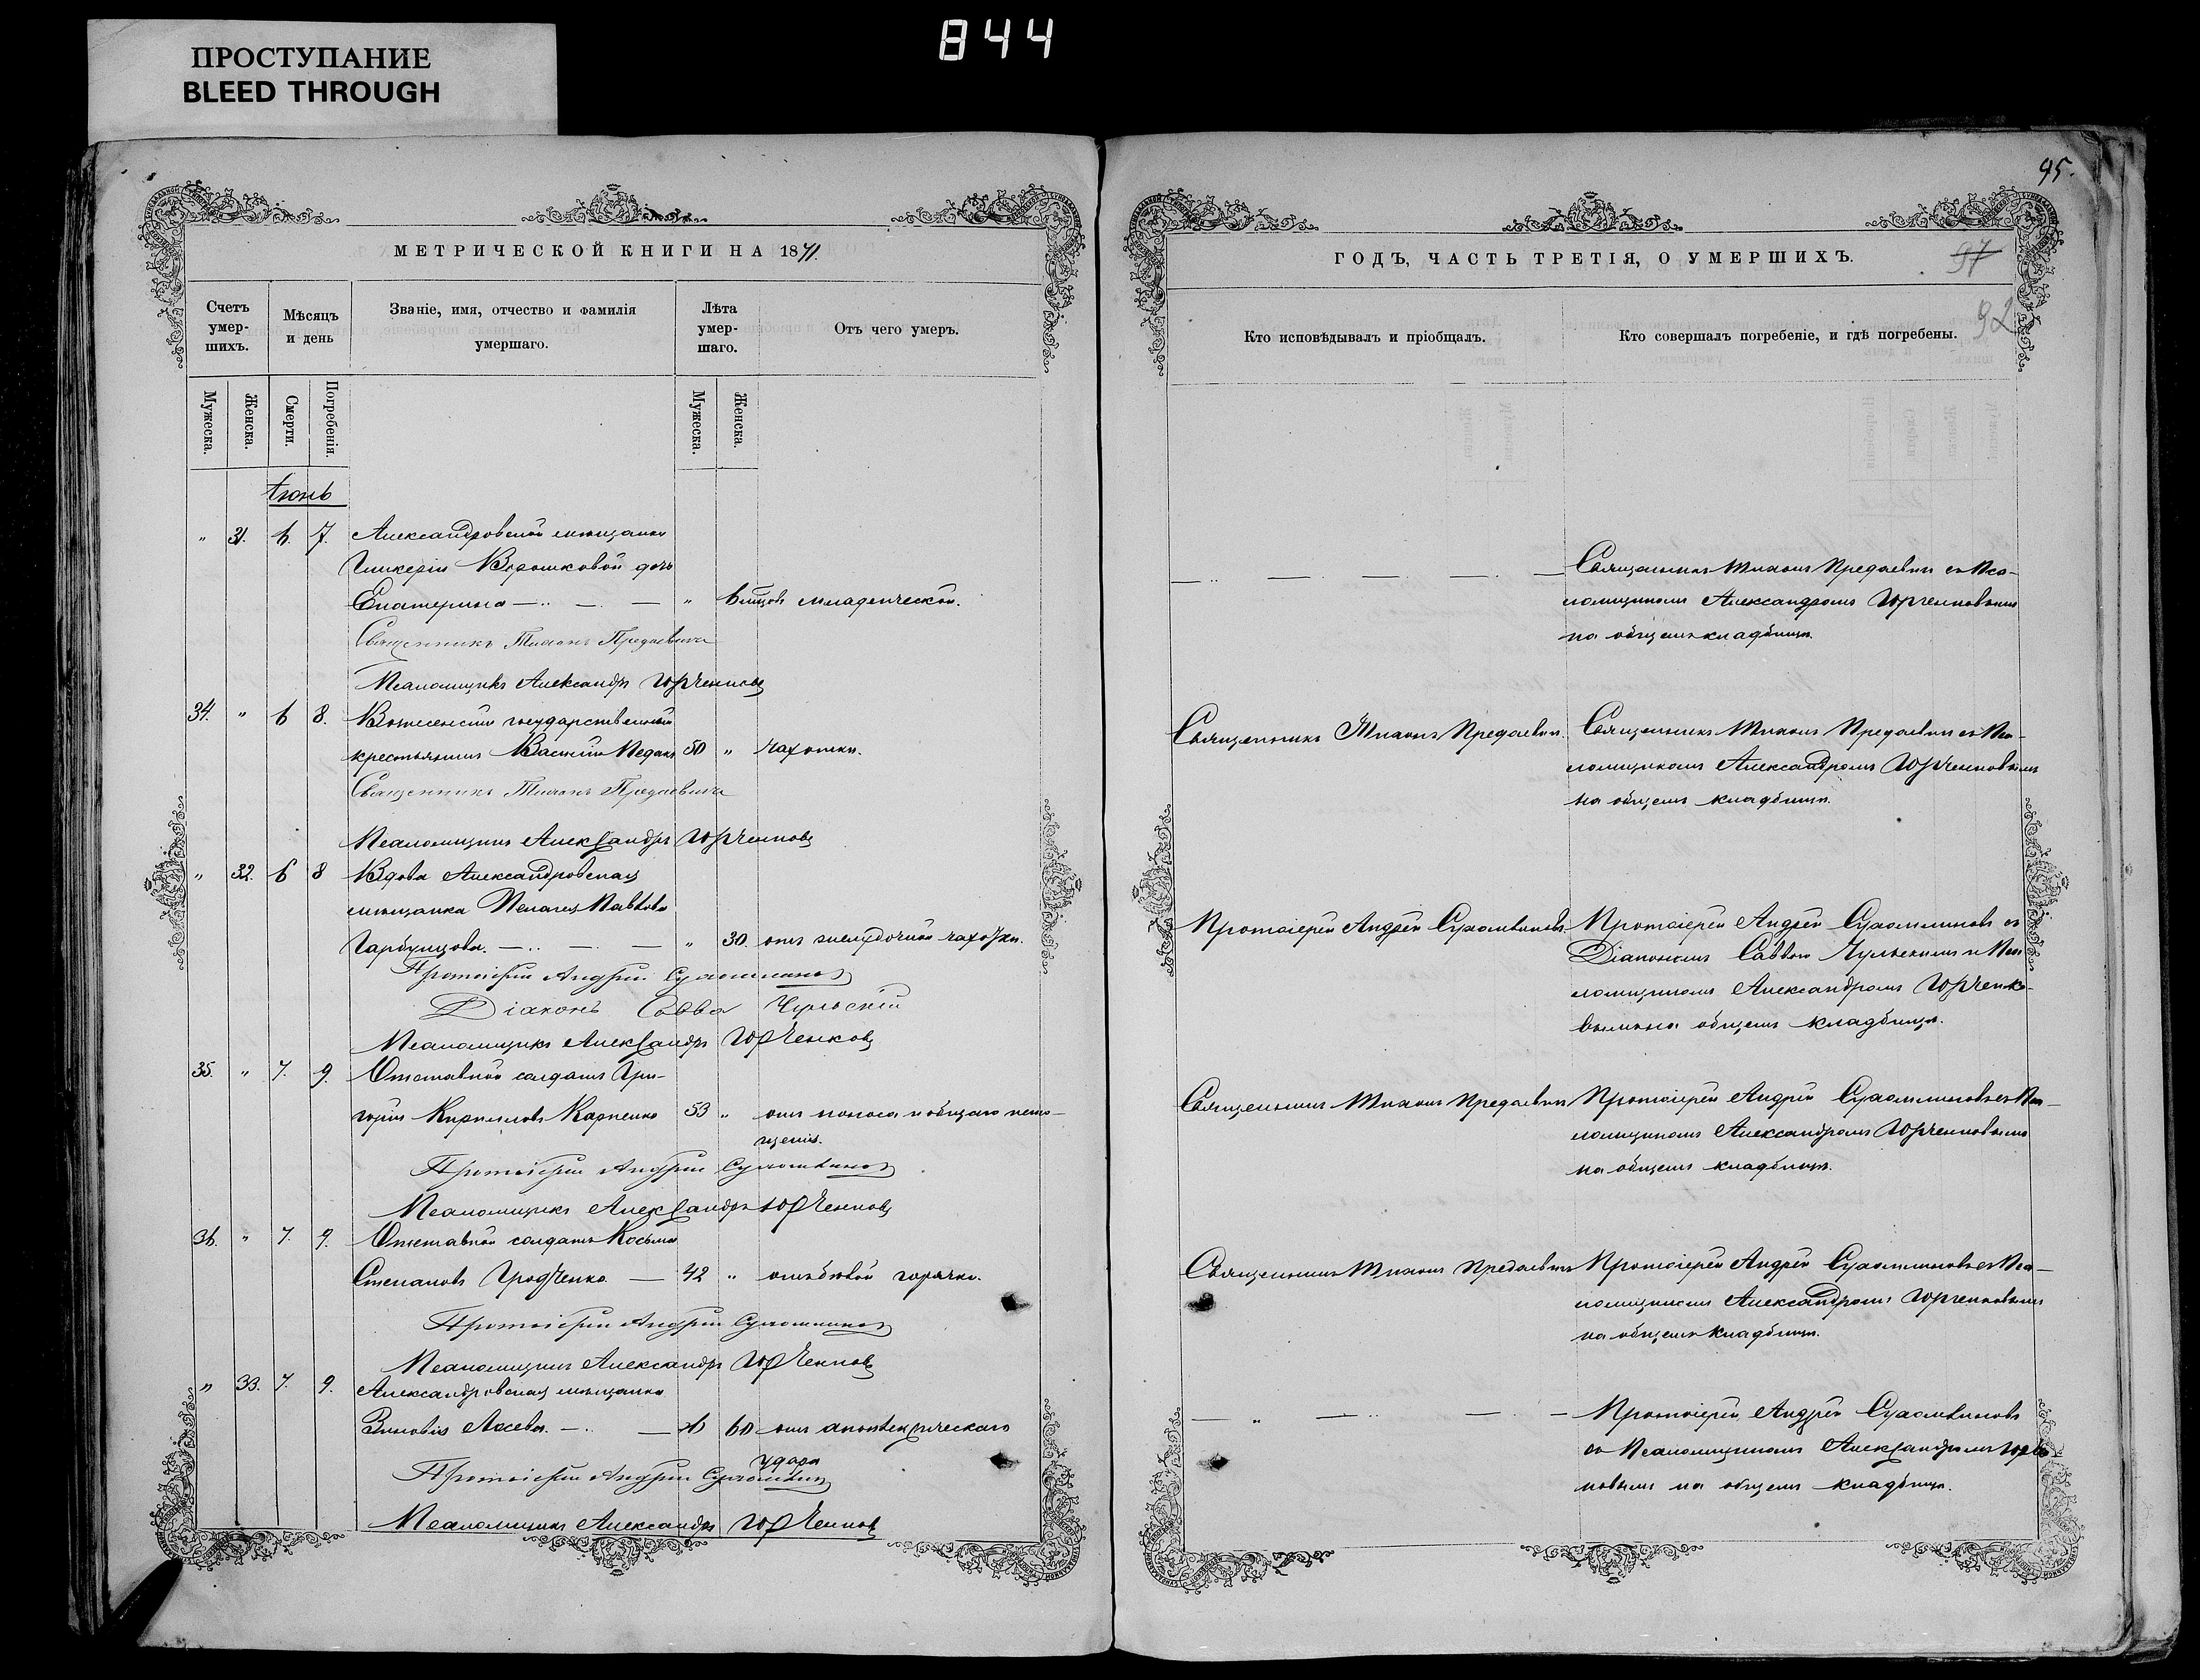 844
ПРОСТУПАНИЕ
BLEED THROUGH
МЕТРИЧЕСКОЙ КНИГИ НА 1871.
Счетъ умер-шихъ.
Мѣсяцъ и день
Званіе, имя, отчество и фамилія умершаго.
Лѣта умер-шаго.
Отъ чего умеръ.
Мужеска.
Женска.
Смерти.
Погребенія.
Мужеска.
Женска.
Іюнь
" 31. 6. 7. Александровской мѣщанки
Гликеріи Ворошковой дочь
Екатерина — " 6 мцовъ младенческой.
Священникъ Тихонъ Предаевичъ
Псаломщикъ Александръ Юрченковъ
34. " 6 8. Вознесенскій государственный
крестьянинъ Василій Педакъ 50 " чахотки.
Священникъ Тихонъ Предаевичъ
Псаломщикъ Александръ Юрченковъ
" 32. 6 8 Вдова Александровская
мѣщанка Пелагея Павлова
Гарбузцова. — " 30. отъ желудочной чахотки.
Протоіерей Андрей Сухомлиновъ
Діаконъ Савва Чульскій
Псаломщикъ Александръ Юрченковъ
35. " 7. 9. Отставной солдатъ Гри-
горій Кирилловъ Карпенко 53 " отъ поноса и общаго исто-
щенія.
Протоіерей Андрей Сухомлиновъ
Псаломщикъ Александръ Юрченковъ
36. " 7. 9. Отставной солдатъ Косьма
Степановъ Гродченко — 42 " горячки.
Протоіерей Андрей Сухомлиновъ
Псаломщикъ Александръ Юрченковъ
" 33. 7. 9. Александровская мѣщанка
Зиновія — 60 отъ апоплексическаго
удара
Протоіерей Андрей Сухомлиновъ
Псаломщикъ Александръ Юрченковъ
95.
97
92
ГОДЪ, ЧАСТЬ ТРЕТІЯ, О УМЕРШИХЪ.
Кто исповѣдывалъ и пріобщалъ.
Кто совершалъ погребеніе, и гдѣ погребены.
Священникъ Тихонъ Предаевичъ съ Пса-
ломщикомъ Александромъ Юрченковымъ
на общемъ кладбищѣ.
Священникъ Тихонъ Предаевичъ. Священникъ Тихонъ Предаевичъ съ Пса-
ломщикомъ Александромъ Юрченковымъ
на общемъ кладбищѣ.
Протоіерей Андрей Сухомлиновъ. Протоіерей Андрей Сухомлиновъ съ
Діакономъ Саввою Чульскимъ и Пса-
ломщикомъ Александромъ Юрченко-
вымъ на общемъ кладбищѣ.
Священникъ Тихонъ Предаевичъ Протоіерей Андрей Сухомлиновъ съ Пса-
ломщикомъ Александромъ Юрченковымъ
на общемъ кладбищѣ.
Священникъ Тихонъ Предаевичъ Протоіерей Андрей Сухомлиновъ съ Пса-
ломщикомъ Александромъ Юрченковымъ
на общемъ кладбищѣ.
Протоіерей Андрей Сухомлиновъ
съ Псаломщикомъ Александромъ Юрчен-
ковымъ на общемъ кладбищѣ.